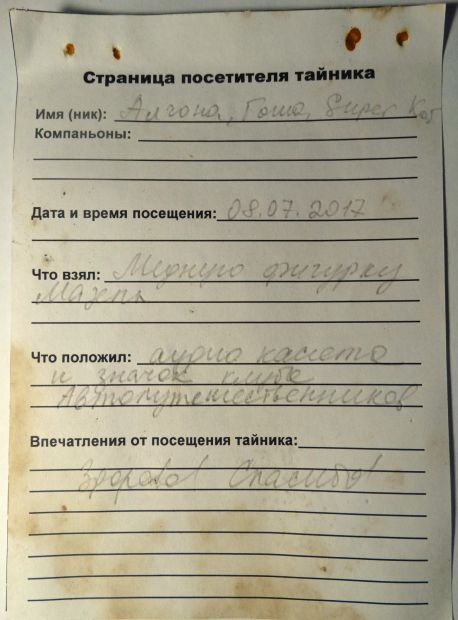 Страница посетителя тайника
Имя (ник): Алгона, Гоша, Super Кот
Компаньоны:
Дата и время посещения: 08.07.2017
Что взял: Медную фигурку
Что положил: аудио касета
и значок клуба
Автопутешественников
Впечатления от посещения тайника:
Здорово! Спасибо!